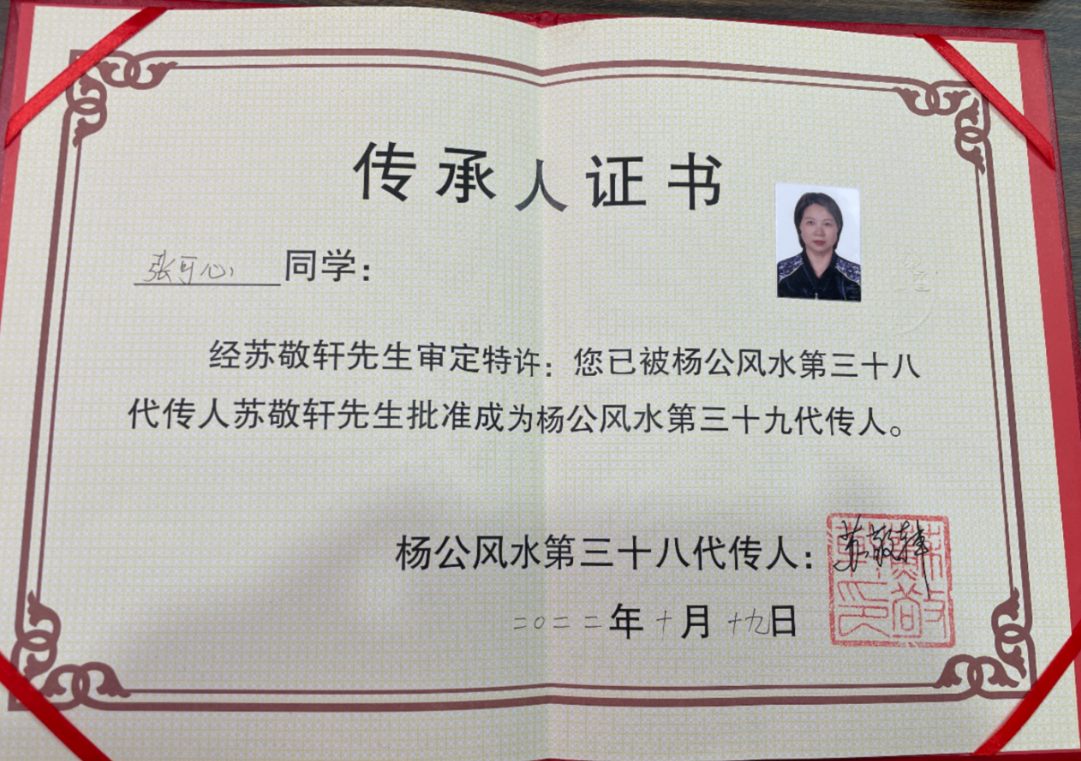 传承人证书
张可心 同学：
经苏敬轩先生审定特许：您已被杨公风水第三十八
代传人苏敬轩先生批准成为杨公风水第三十九代传人。
杨公风水第三十八代传人：苏敬轩
二〇二二年十月十九日